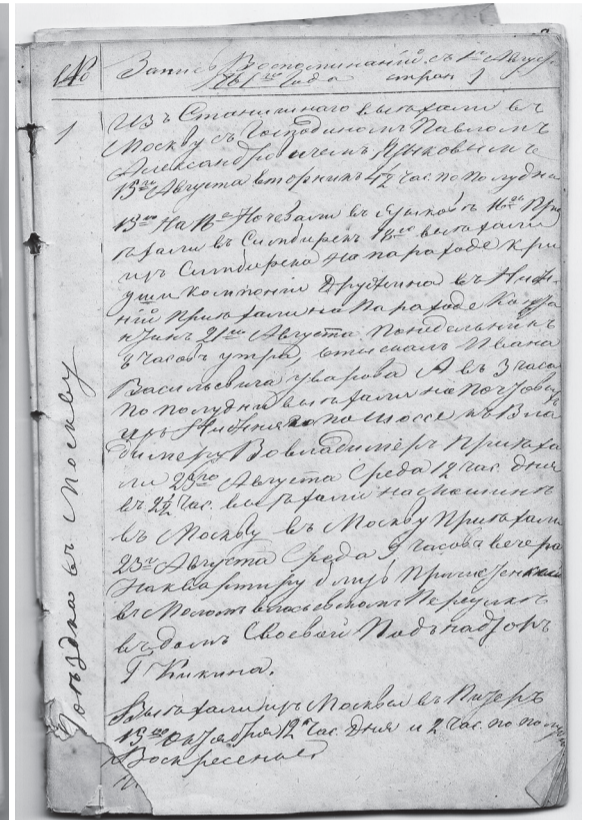 № Запись Воспоминаній съ 1го Август
1861го Года стран 1
1
Изъ Станишнаго выѣхали въ
Москву съ Господиномъ Павломъ
Александровичемъ Языковымъ
15го Августа вторникъ 4½ час. по полудни
15го На 16е Ночевали въ Языковѣ 16го При
ѣхали въ Симбирскъ 18го выѣхали
изъ Симбирска на пароходѣ
компаніи Дружина въ Ниж
ній Пріѣхали на Пароходѣ
21го Августа понедѣльникъ
8 часовъ утра, отыскалъ Ивана
Васильевича Уварова А въ 3 часа
по полудни выѣхали на почтовыхъ
изъ Нижняго по шоссе къ Вла
димеру Во владимеръ Пріѣха
ли 23го Августа Среда 12 час. дня
въ 2½ час. выѣхали на машинѣ
въ Москву въ Москву Пріѣхали
23го Августа Среда 9 часовъ вечера
на квартиру близь
въ Переулкѣ
въ домъ Своевой Подъ надзоръ
Г Кикина.
Выѣхали изъ Москвы въ Питеръ
15го Октября 12 час. дня и 2 час. по полу
Воскресенье
Поѣздка въ Москву